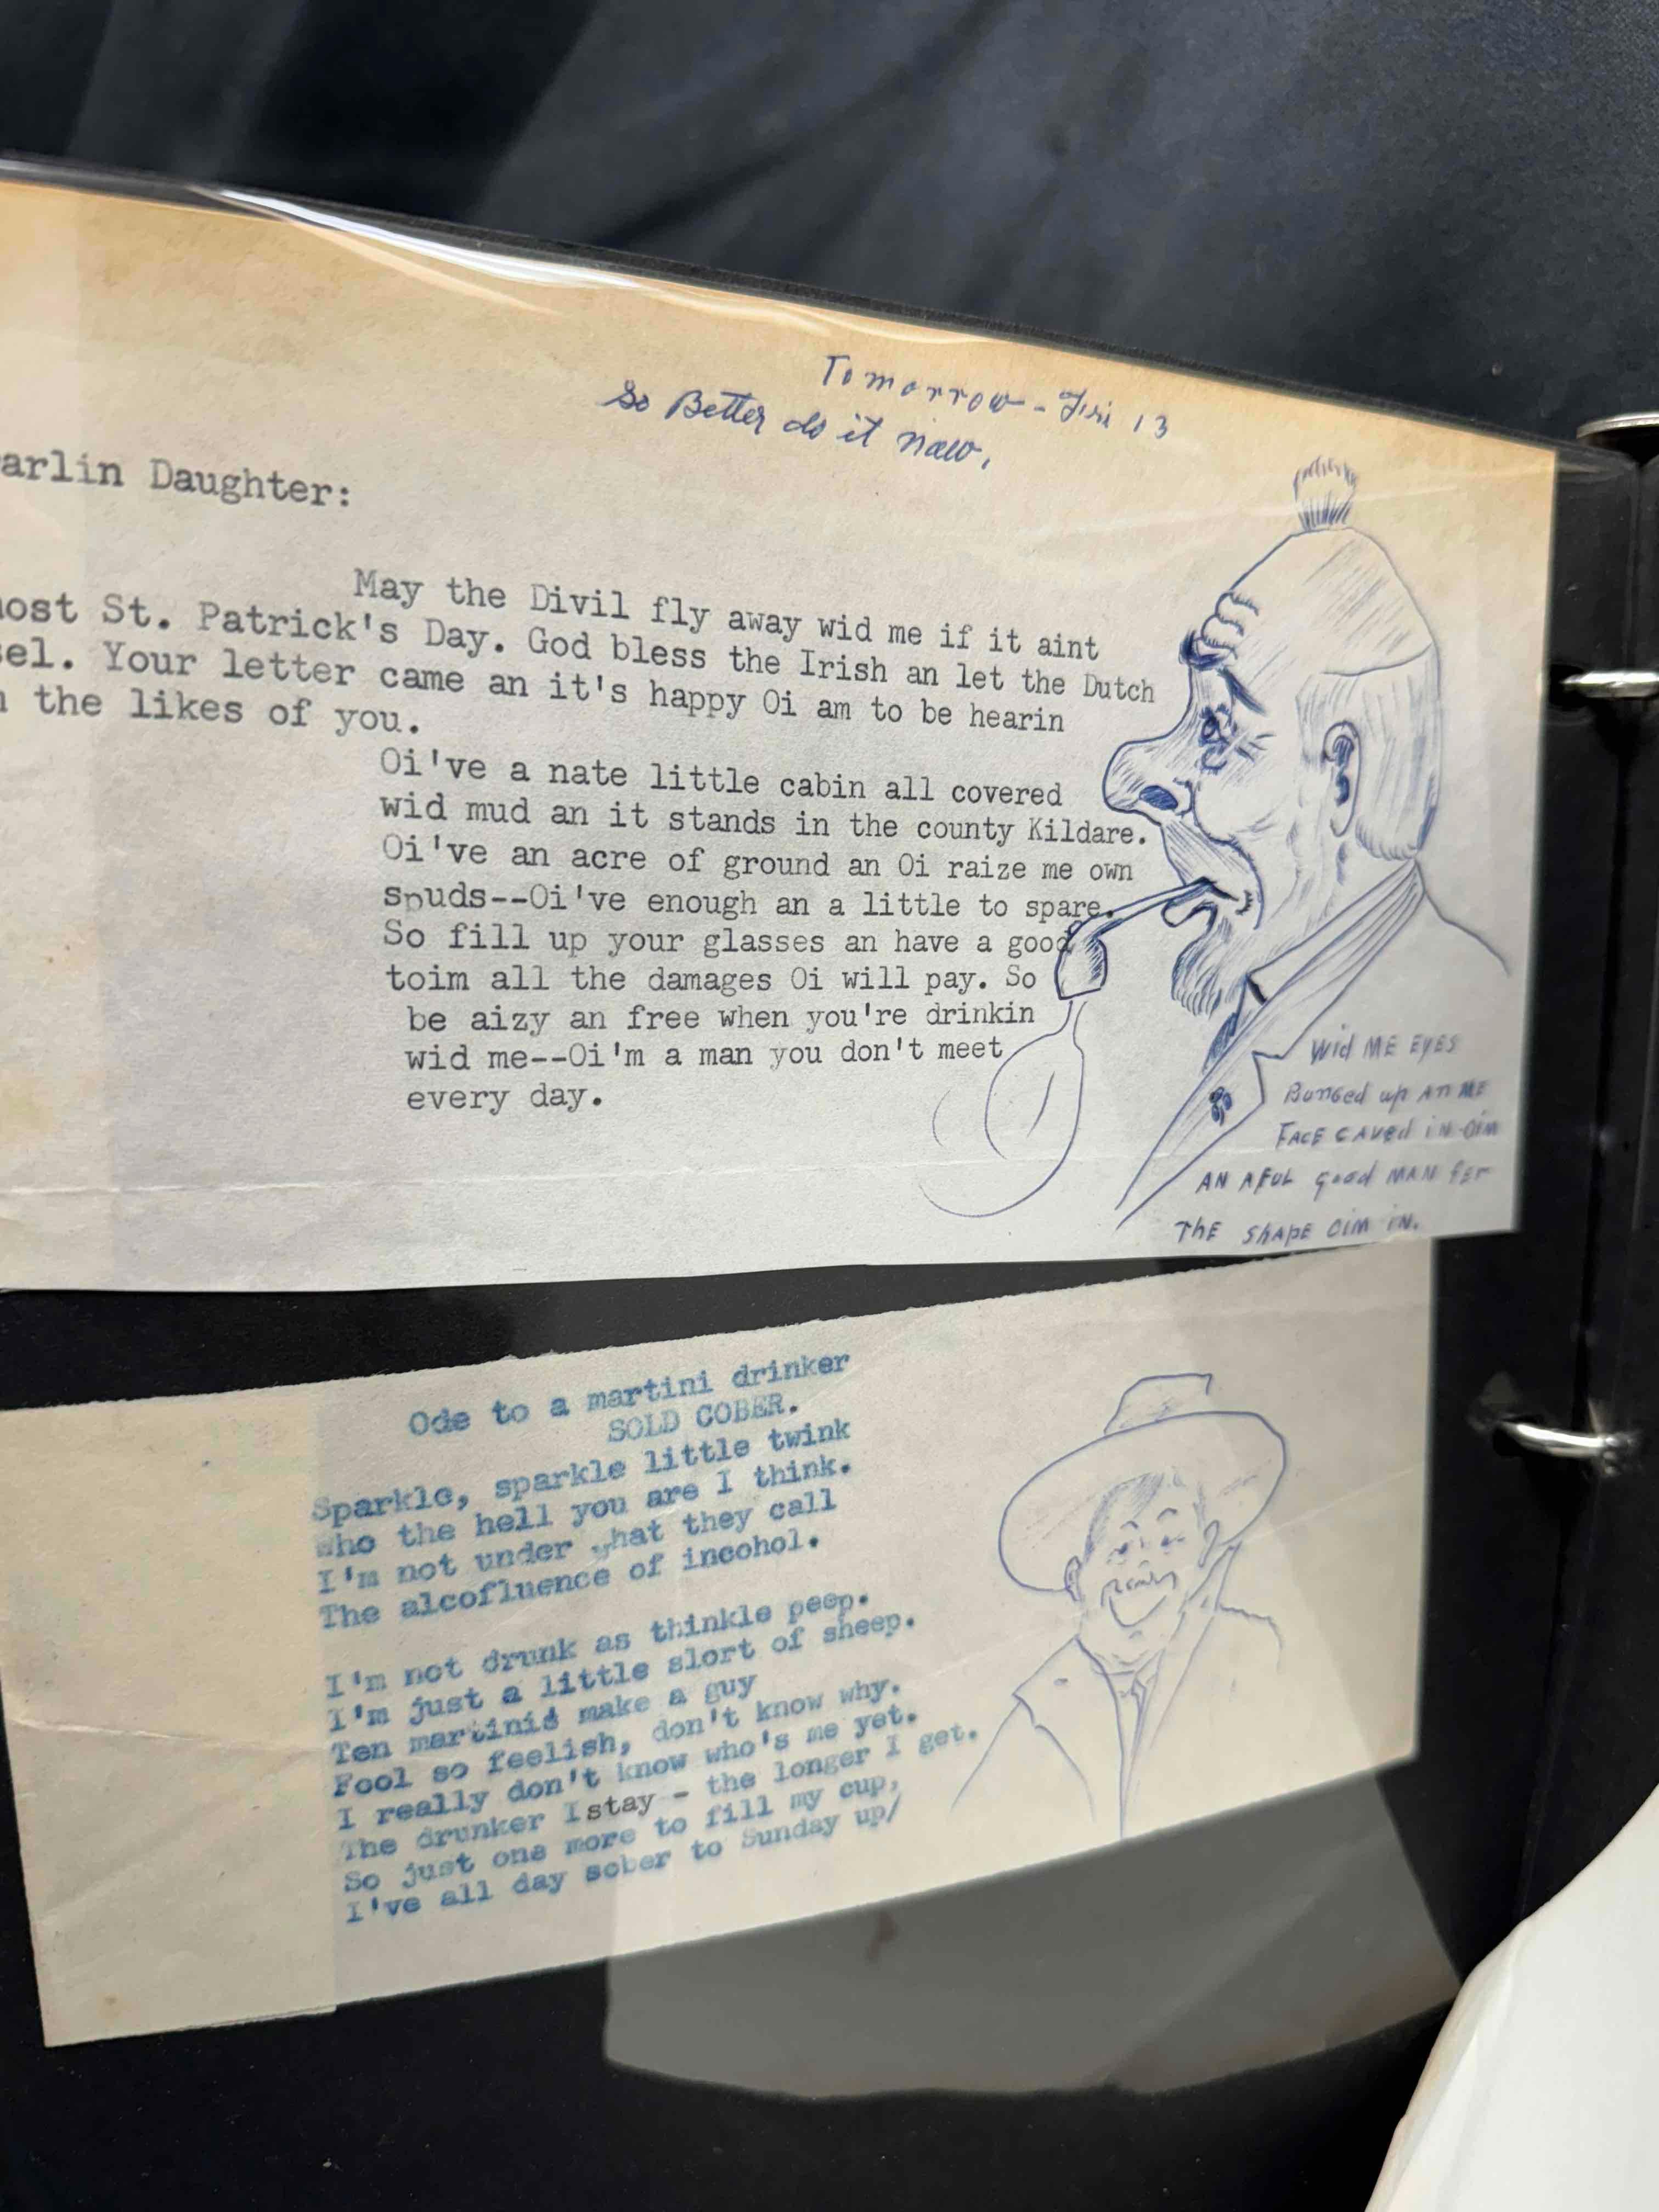 Tomorrow - Fri 13
So Better do it now.
arlin Daughter:
May the Divil fly away wid me if it aint
ost St. Patrick's Day. God bless the Irish an let the Dutch
el. Your letter came an it's happy Oi am to be hearin
the likes of you.
Oi've a nate little cabin all covered
wid mud an it stands in the county Kildare.
Oi've an acre of ground an Oi raize me own
spuds--Oi've enough an a little to spare.
So fill up your glasses an have a good
toim all the damages Oi will pay. So
be aizy an free when you're drinkin
wid me--Oi'm a man you don't meet
every day.
Wid ME EYES
Bunged up AN ME
FACE CAVEd iN-OiM
AN AFUL good MAN fer
ThE ShAPE OiM iN.
Ode to a martini drinker
SOLD COBER.
Sparkle, sparkle little twink
Who the hell you are I think.
I'm not under what they call
The alcofluence of incohol.
I'm not drunk as thinkle peep.
I'm just a little slort of sheep.
Ten martinis make a guy
Fool so feelish, don't know why.
I really don't know who's me yet.
The drunker I stay - the longer I get.
So just one more to fill my cup,
I've all day sober to Sunday up/